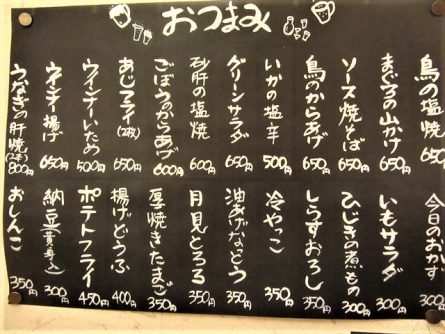 おつまみ
鳥の塩焼 650円
まぐろの山かけ 650円
ソース焼そば 650円
鳥のからあげ 650円
いかの塩辛 500円
グリーンサラダ 650円
砂肝の塩焼 600円
ごぼうのからあげ 600円
あじフライ(2枚) 650円
ウインナいため 500円
ウインナ揚げ 650円
うなぎの肝焼(2本) 800円
今日のおかず 300円
いもサラダ 300円
ひじきの煮もの 300円
しらすおろし 350円
冷やっこ 300円
油あげなっとう 350円
月見とろろ 350円
厚焼きたまご 350円
揚げどうふ 400円
ポテトフライ 450円
納豆(黄身入) 300円
おしんこ 350円